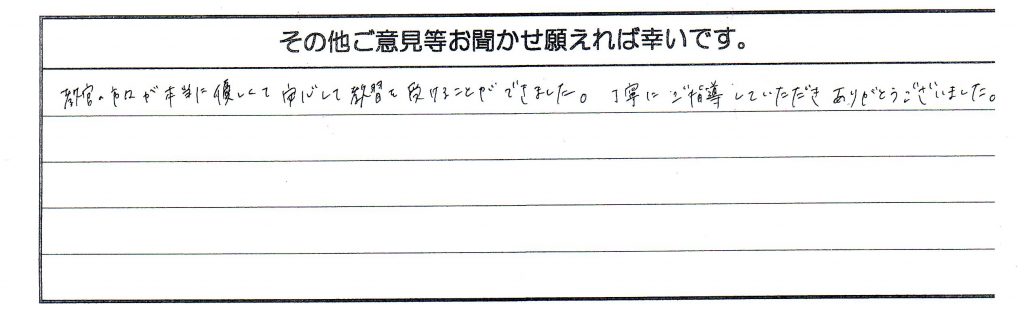 その他ご意見等お聞かせ願えれば幸いです。
教官の方が本当に優しくて安心して教習を受けることができました。丁寧にご指導していただきありがとうございました。